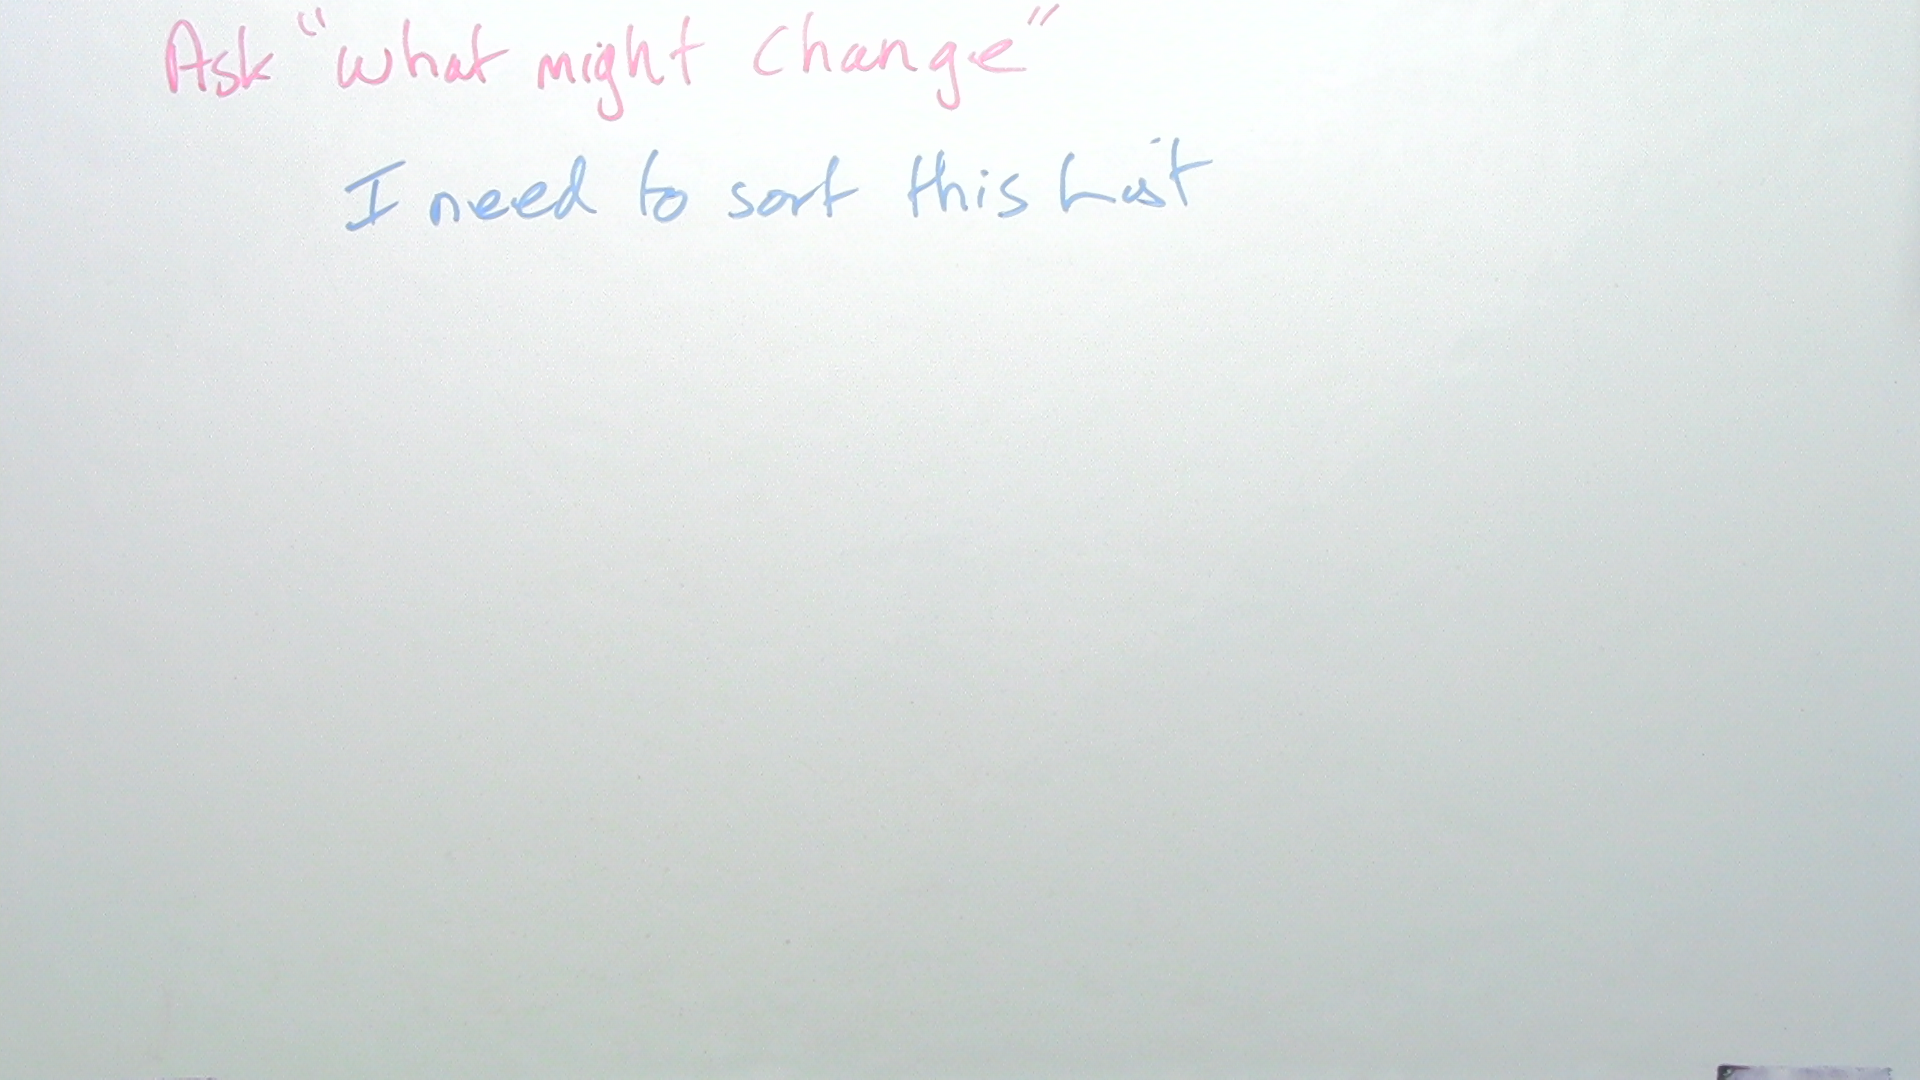 Ask "what might change"
I need to sort this list